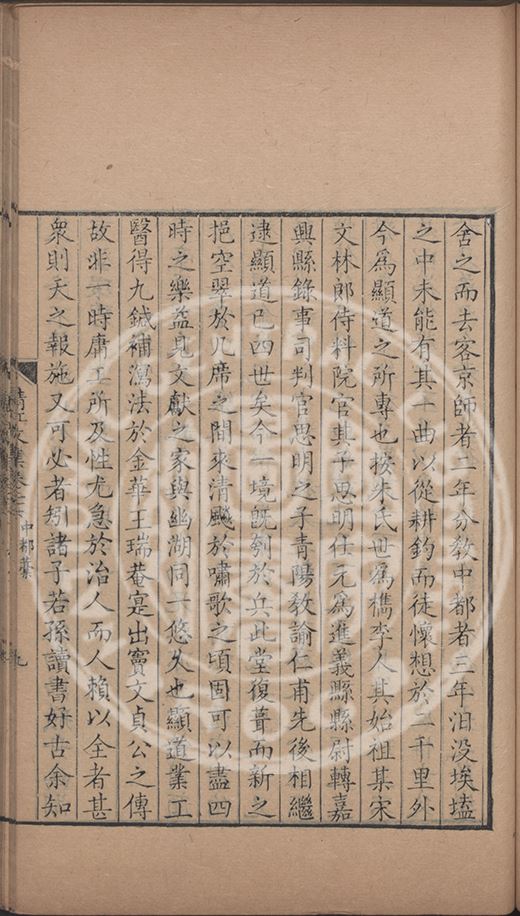 舍之而去客京師者二年分敎中都者三年汨没埃壒
之中未能有其一曲以從耕釣而徒懷想於二千里外
今爲顯道之所專也按朱氏世爲檇李人其始祖某宋
文林郎侍料院官其子思明仕元爲進義縣縣尉轉嘉
興縣錄事司判官思明之子青陽敎諭仁甫先後相繼
逮顯道巳四世矣今一境旣刳於兵此堂復葺而新之
挹空翠於几席之間來清飈於嘯歌之頃固可以盡四
時之樂益見文獻之家與幽湖同于悠久也顯道業工
醫得九鍼補瀉法於金華王瑞菴寔出竇文貞公之傳
故非一時庸工所及性尤急於治人而人賴以全者甚
衆則天之報施又可必者矧諸子若孫讀書好古余知
清江文集卷之
中都藁
九